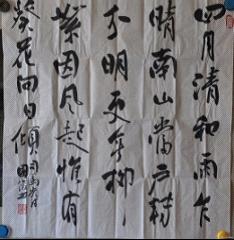 四月清和雨乍
晴南山當户转
分明更无柳
絮因风起惟有
葵花向日倾